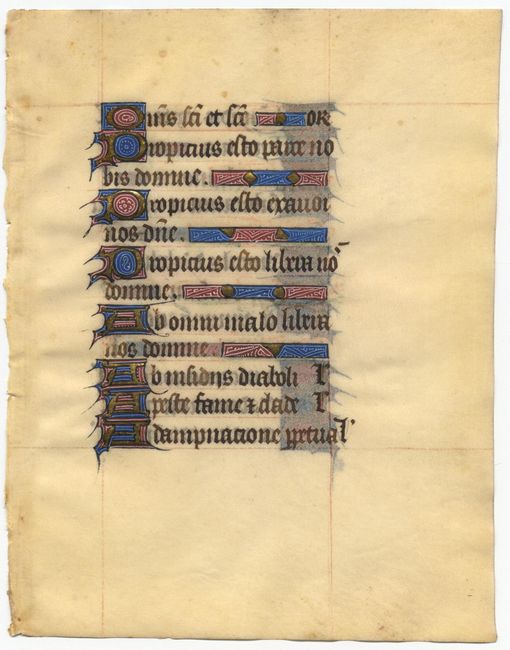 Om̄s sc̄i et sc̄e or
Propicius esto parce no
bis domine.
Propicius esto exaudi
nos dn̄e.
Propicius esto libera nō
domine.
Ab omni malo libera
nos domine.
Ab insidijs diaboli l'
A peste fame ⁊ clade l'
A dampnacione ꝑpetua l'